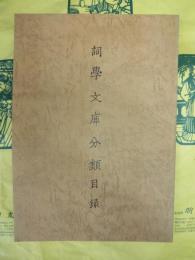 詞學文庫分類目錄